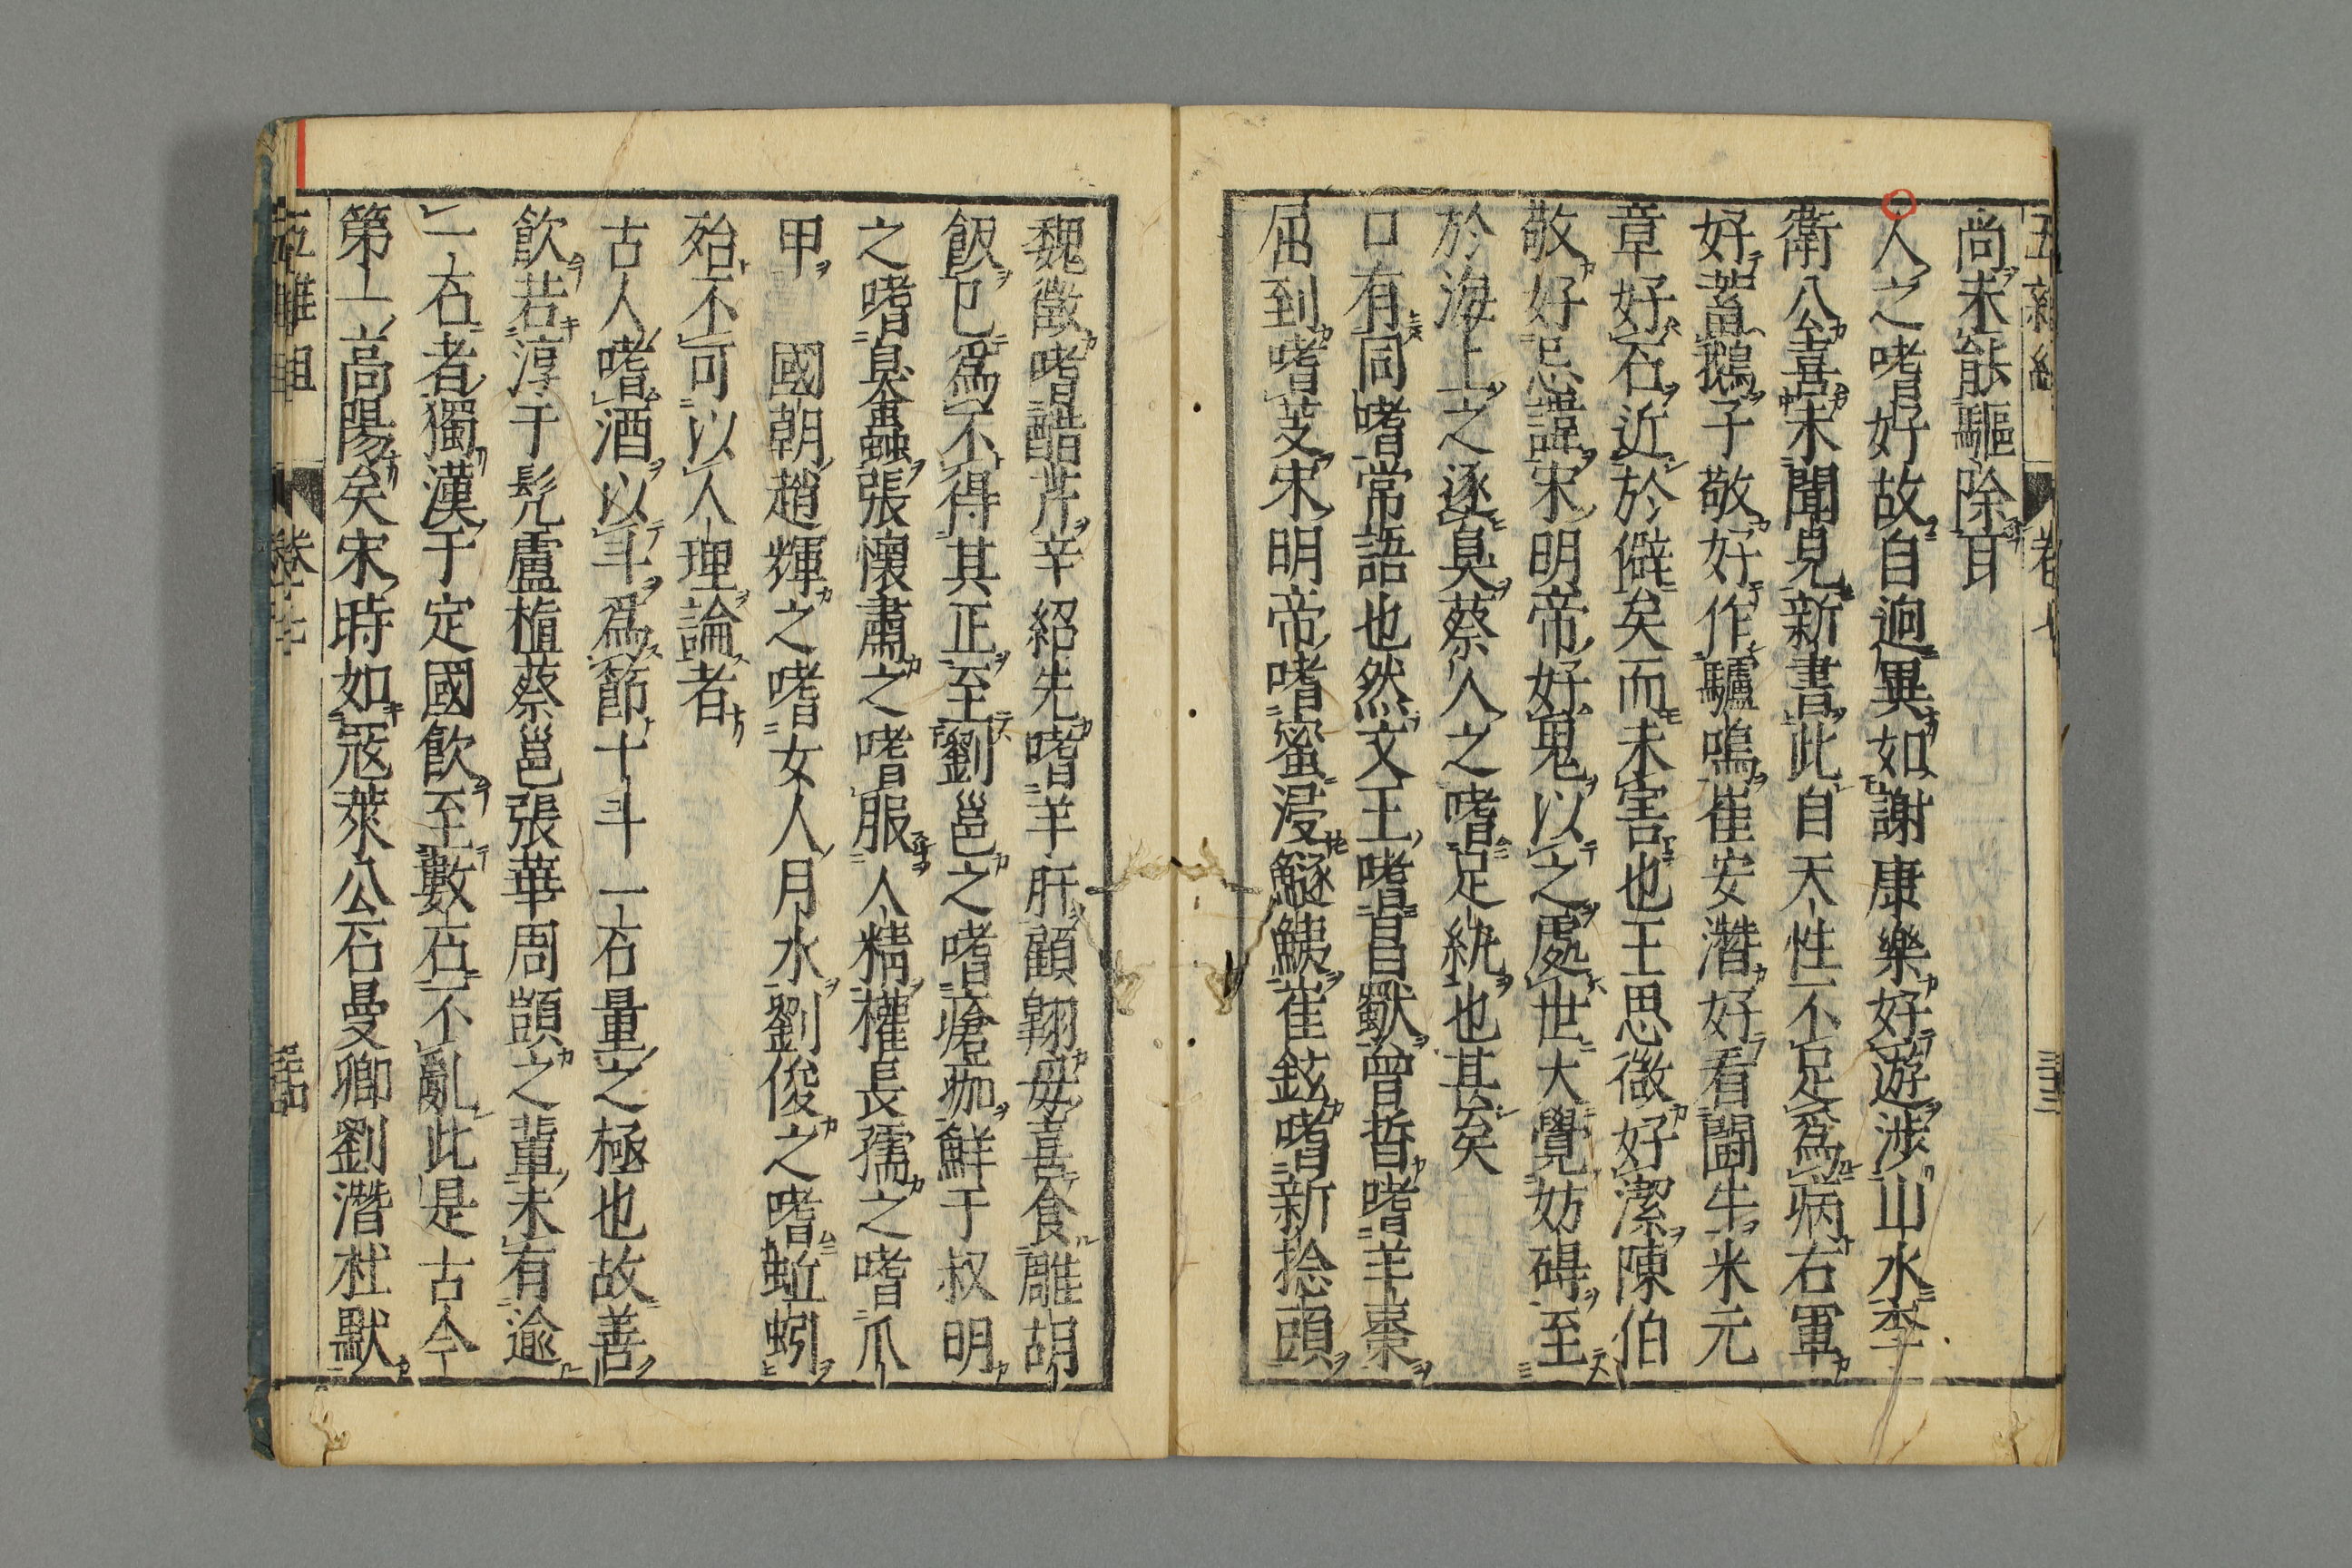 尚未能驅除耳
人之嗜好故自迥異如謝康樂好遊涉山水李
衛公喜未聞見新書此自天性不足爲病右軍
好蓄鵝子敬好作驢鳴崔安潛好看鬪牛米元
章好石近於僻矣而未害也王思微好潔陳伯
敬好忌諱宋明帝好鬼以之處世大覺妨碍至
於海上之逐臭蔡人之嗜足紈也甚矣
口有同嗜常語也然文王嗜昌歜曾晳嗜羊棗
屈到嗜芰宋明帝嗜蜜浸鱁鮧崔鉉嗜新捻頭
魏徵嗜醋芹辛紹先嗜羊肝顧翱母喜食雕胡
飯已爲不得其正至劉邕之嗜瘡痂鮮于叔明
之嗜臭蟲張懷肅之嗜服人精權長孺之嗜爪
甲 國朝趙輝之嗜女人月水劉俊之嗜蚯蚓
殆不可以人理論者
古人嗜酒以斗爲節十斗一石量之極也故善
飲若淳于髡盧植蔡邕張華周顗之輩未有逾
一石者獨漢于定國飲至數石不亂此是古今
第一高陽矣宋時如寇萊公石曼卿劉潛杜默
五雜組 卷七